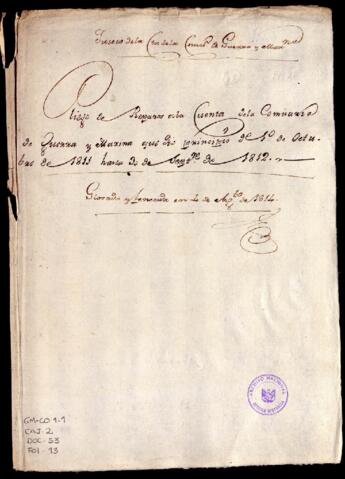 de la Com.ª de Guerra y Mar.na
Pliego de Reparos a la Cuenta de la Comisaria
de Guerra y Marina que dio principio de 1º de Octu-
bre de 1811 hasta 30 de Sep.re de 1812.
y fenecida en 4 de Ag.to de 1814.
ARCHIVO NACIONAL
GM-CO 1-1
CAJ-2
DOC-53
FOL-13